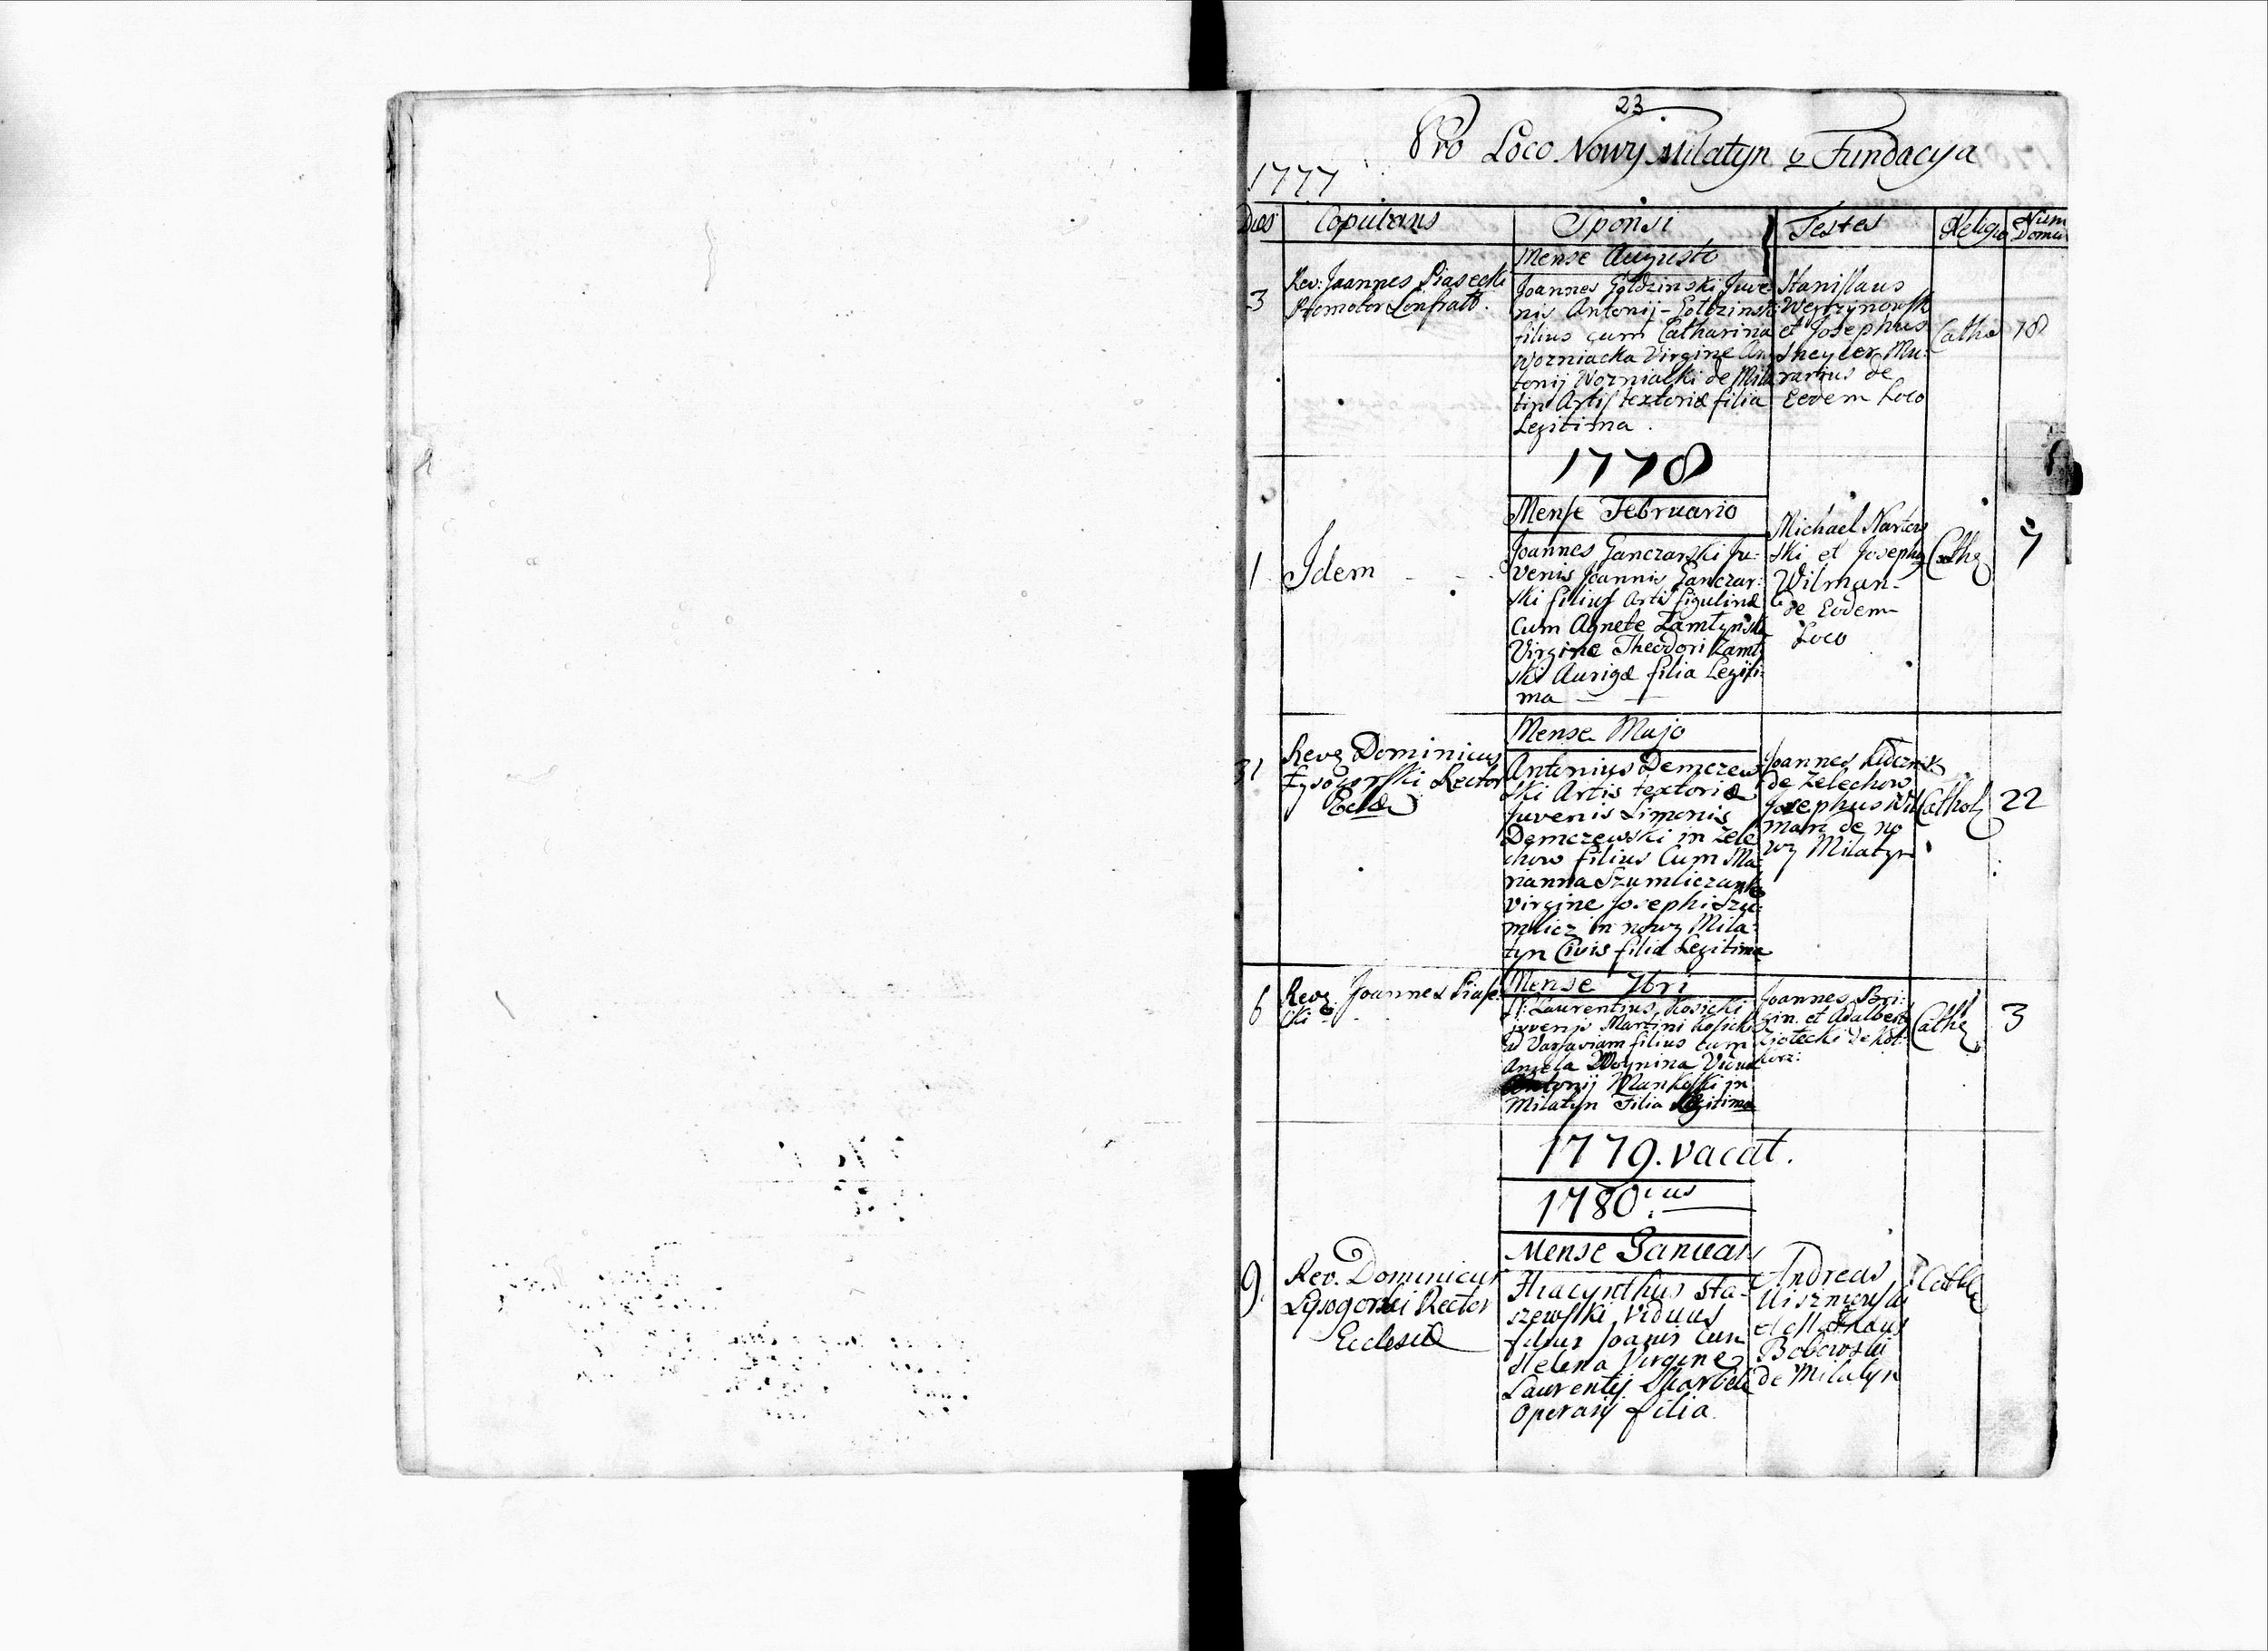 23
Pro Loco Nowy Milatyn z Fundacya
1777
Dies Copulans Sponsi Testes Religio Num Domus
Mense Augusto
3
Rev: Joannes Piasecki
Promotor Confrat
Joannes Goldzinski Juve
nis Antonij Goldzinski
filius cum Catharina
Wozniacka Virgine An
tonij Wozniacki de Mila
tin Artis textoriæ filia
Legitima.
Stanislaus
et Josephus
Mu:
rarius de
Eodem Loco
Catho
18
1778
Mense Februario
1
Idem
Joannes Ganczarski Ju-
venis Joannis Ganczar:
ski filius Artis figulinæ
Cum Agnete Zamtynska
Virgine Theodori Zamt
ski Aurigæ filia Legiti:
ma
Michael
ski et Joseph
Wilman
de Eodem
Loco
Cath
7
Mense Majo
31
Rev Dominicus
Łysogorski Rector
Eccl
Antonius Demczew
ski Artis textoriæ
Juvenis Simonis
Demczewski in Zele
chow filius Cum Ma
rianna Szumliczanka
virgine Josephi Szu
mlicz in nowy Mila:
tyn Civis filia Legitima
Joannes
de Zelechow
Josephus Wil
man de no
wy Milatyn
Cathol
22
Mense 7bri
6
Rev Joannes Piase
cki
Laurentius Kosicki
juvenis Martini Kosicki
ad Varsaviam filius cum
Angela Woynina Vidua
Antonij Mankoski in
Milatyn Filia Legitima
Joannes Bri:
et Adalbert
de Kol:
Cath
3
1779. vacat.
1780
Mense Januar
9.
Rev. Dominicus
Lysogorski Rector
Ecclesiæ
Hiacynthus Sta-
szewski Viduus
filius Joanis Cum
Helena Virgine
Laurentij
Operarij filia
Andreas
et
Bobowski
de Milatyn
Cath